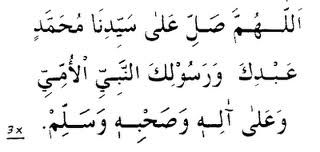 اَللّٰهُمَّ صَلِّ عَلٰى سَيِّدِنَا مُحَمَّدٍ
عَبْدِكَ وَرَسُوْلِكَ النَّبِيِّ الْأُمِّيِّ
وَعَلٰى اٰلِهٖ وَصَحْبِهٖ وَسَلِّمْ.
3x